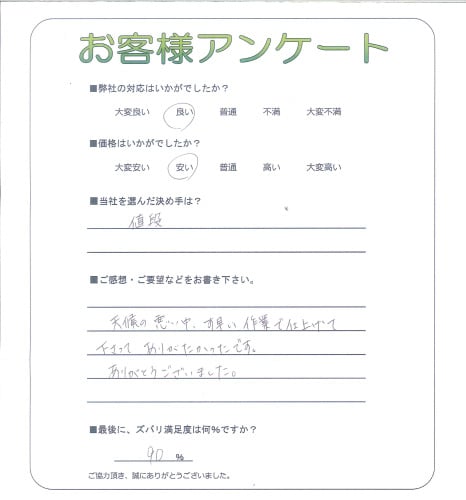 お客様アンケート
■弊社の対応はいかがでしたか？
大変良い 良い 普通 不満 大変不満
■価格はいかがでしたか？
大変安い 安い 普通 高い 大変高い
■当社を選んだ決め手は？
値段
■ご感想・ご要望などをお書き下さい。
天候の悪い中、す早い作業で仕上げて
下さって ありがたかったです。
ありがとうございました。
■最後に、ズバリ満足度は何％ですか？
90 ％
ご協力頂き、誠にありがとうございました。